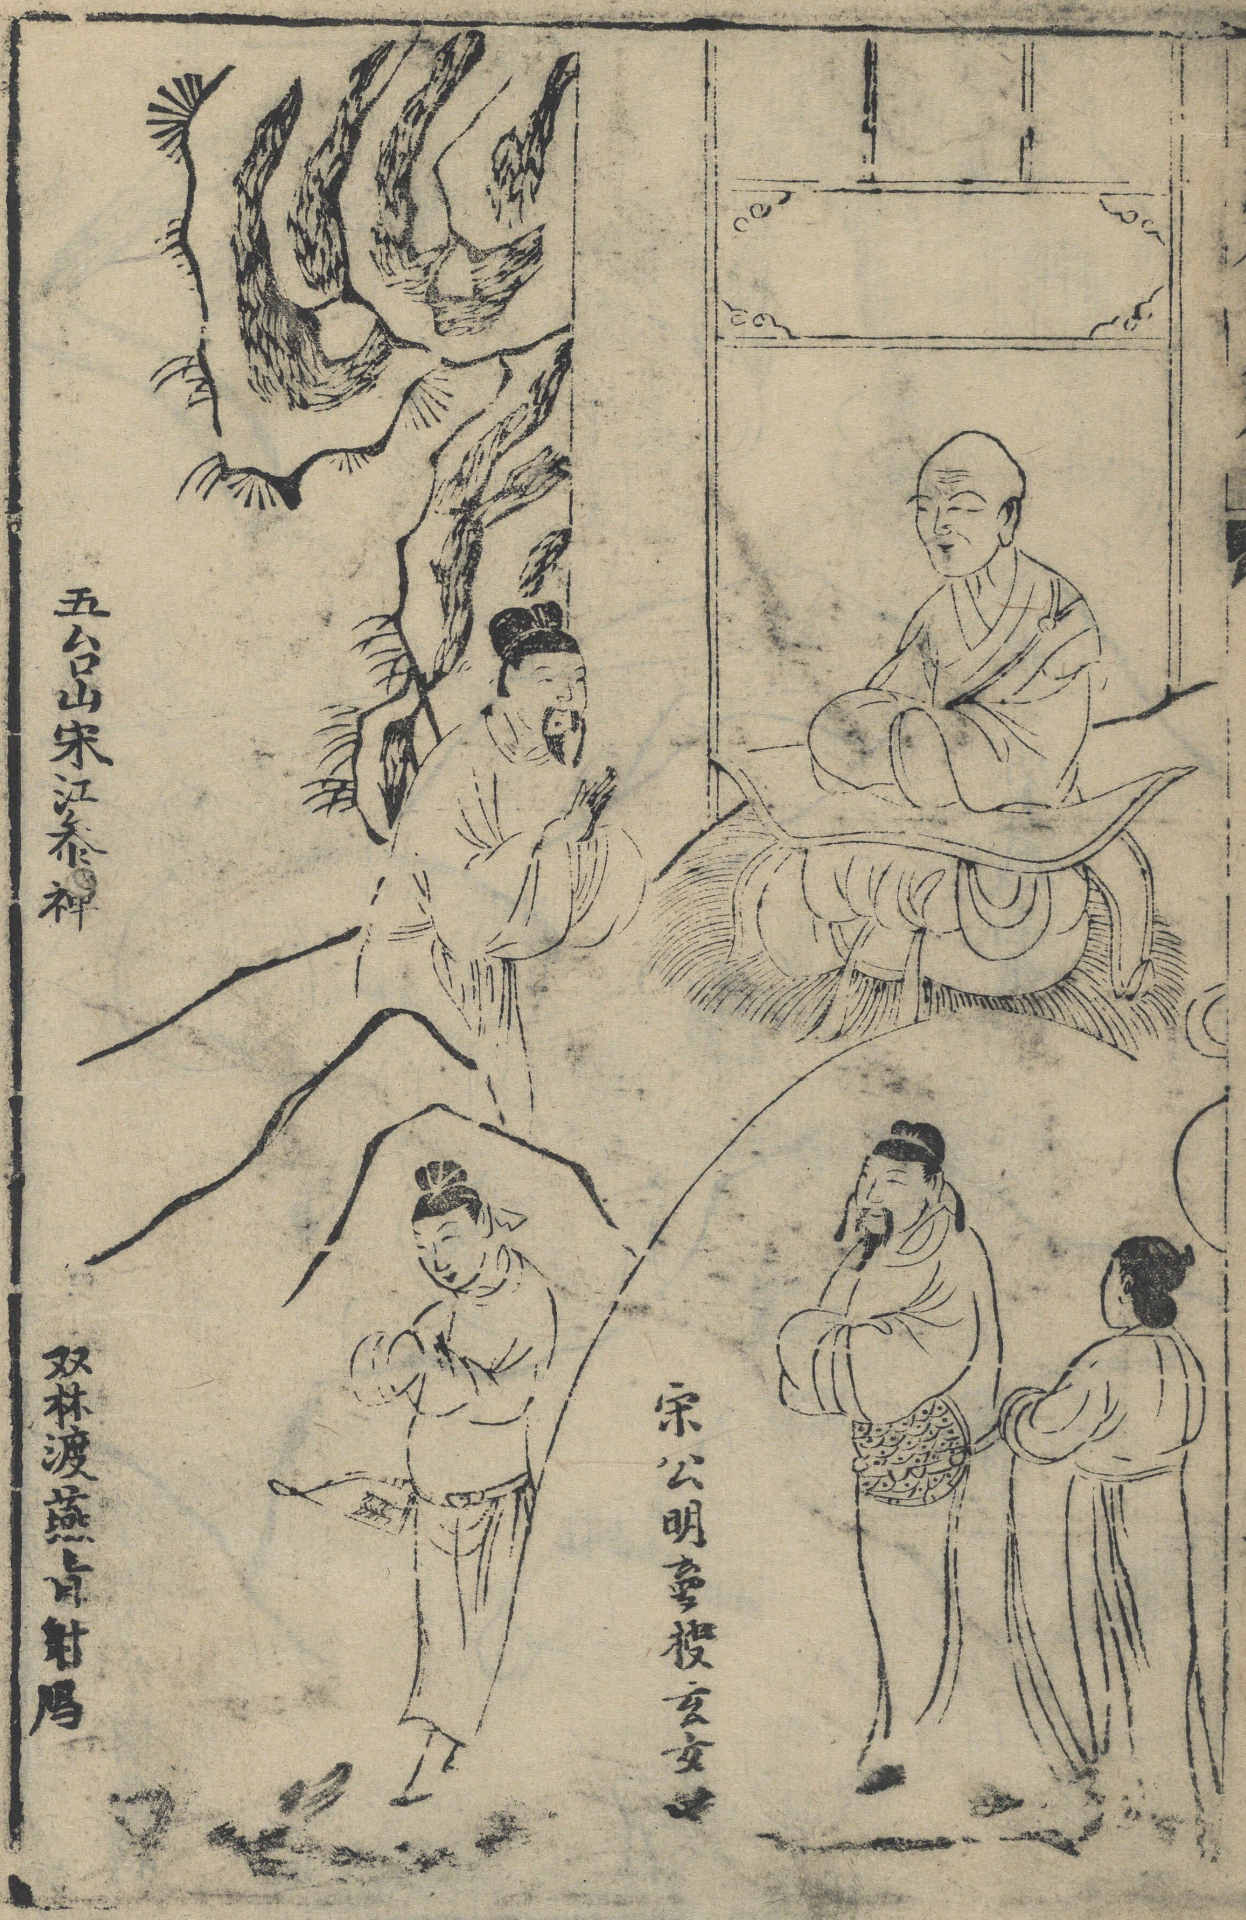 五台山宋江参禅
宋公明夢授玄女
双林渡燕青射鴈